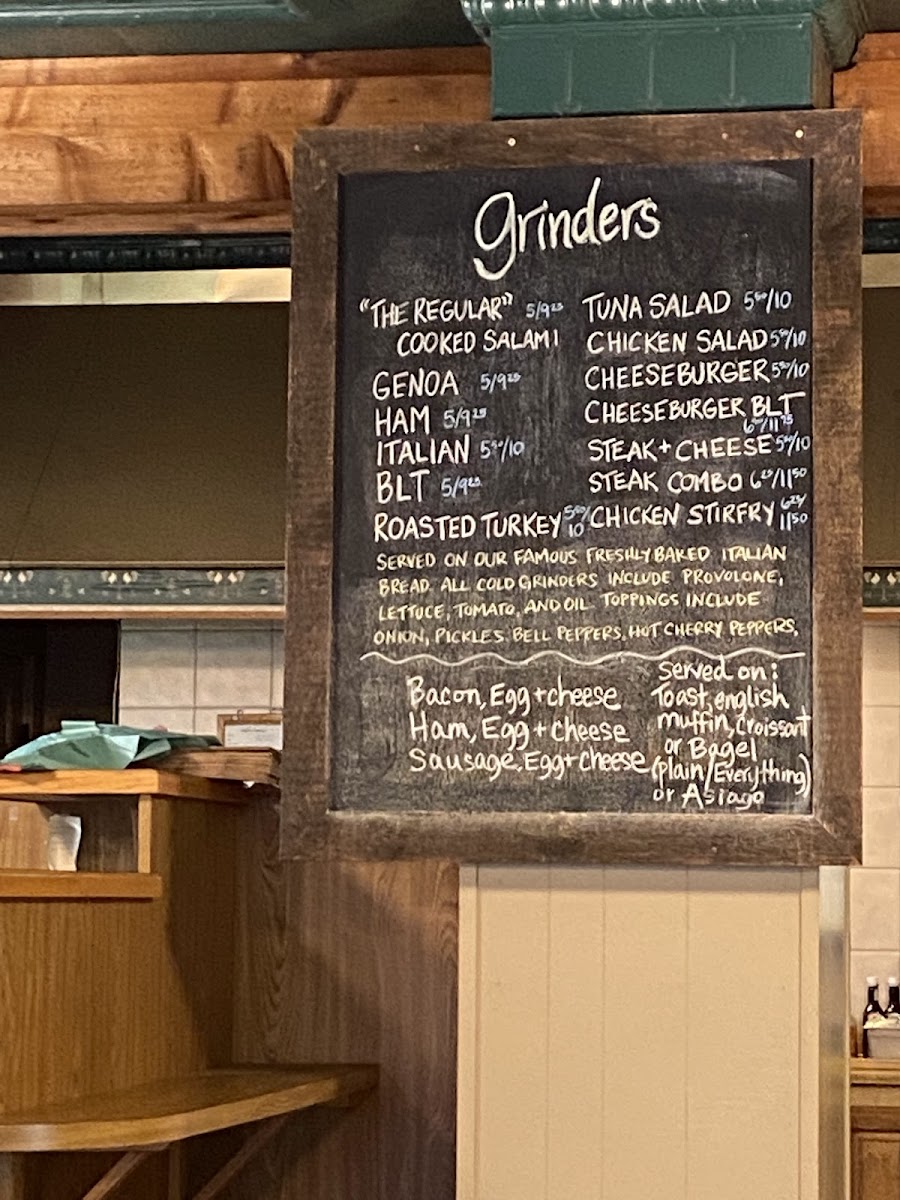 grinders
"THE REGULAR" 5/9²⁵
COOKED SALAMI
GENOA 5/9²⁵
HAM 5/9²⁵
ITALIAN 5⁵⁰/10
BLT 5/9²⁵
ROASTED TURKEY 5⁵⁰/10
TUNA SALAD 5⁵⁰/10
CHICKEN SALAD 5⁵⁰/10
CHEESEBURGER 5⁵⁰/10
CHEESEBURGER BLT
11⁷⁵
STEAK + CHEESE 5⁵⁰/10
STEAK COMBO 6²⁵/11⁵⁰
CHICKEN STIRFRY 6²⁵
11⁵⁰
SERVED ON OUR FAMOUS FRESHLY BAKED ITALIAN
BREAD. ALL COLD GRINDERS INCLUDE PROVOLONE,
LETTUCE, TOMATO, AND OIL. TOPPINGS INCLUDE
ONION, PICKLES, BELL PEPPERS, HOT CHERRY PEPPERS.
Bacon, Egg + cheese
Ham, Egg + cheese
Sausage, Egg + cheese
served on:
Toast, english
muffin, croissant
or Bagel
(plain/Everything)
or Asiago